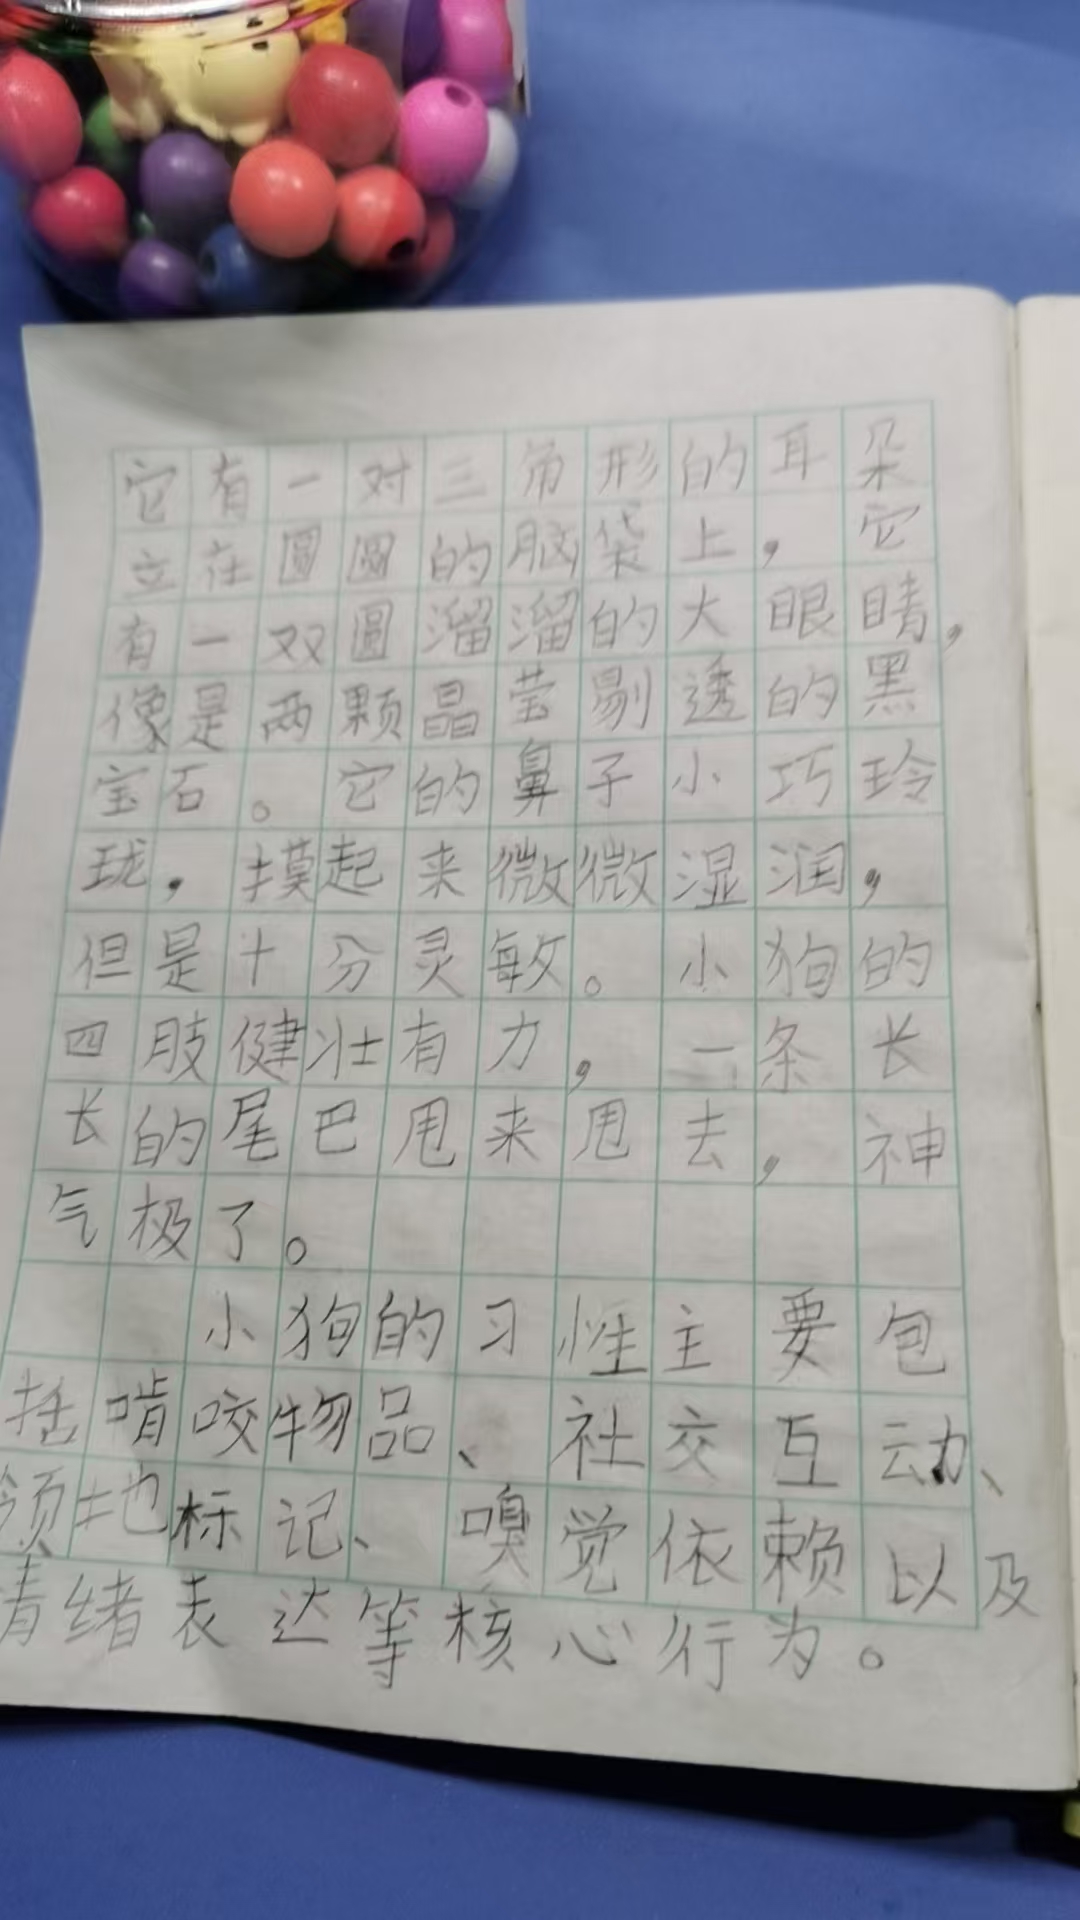 它有一对三角形的耳朵
立在圆圆的脑袋上，它
有一双圆溜溜的大眼睛，
像是两颗晶莹剔透的黑
宝石。它的鼻子小巧玲
珑，摸起来微微湿润，
但是十分灵敏。小狗的
四肢健壮有力，一条长
长的尾巴甩来甩去，神
气极了。
小狗的习性主要包
括啃咬物品、社交互动、
领地标记、嗅觉依赖以及
情绪表达等核心行为。